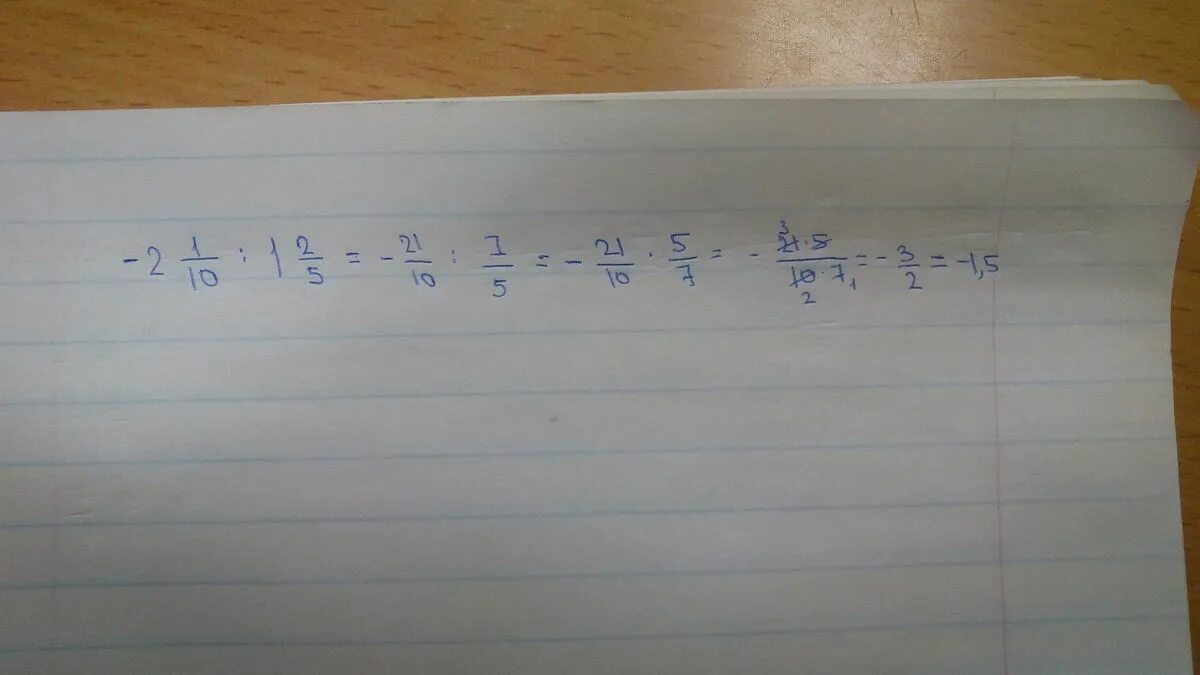 -2 1/10 : 1 2/5 = - 21/10 : 7/5 = - 21/10 · 5/7 = - 3 21·5 / 10·7 2 1 = - 3/2 = -1,5